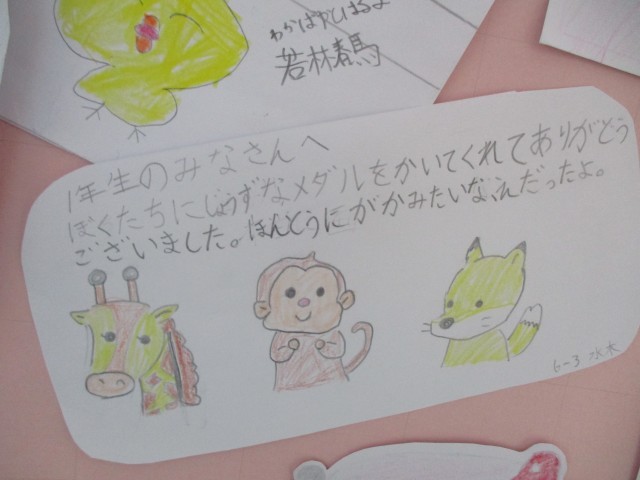 わかばやしはるよ
若林春馬
1年生のみなさんへ
ぼくたちにじょうずなメダルをかいてくれてありがとう
ございました。ほんとうにがかみたいな、えだったよ。
6-3 水木